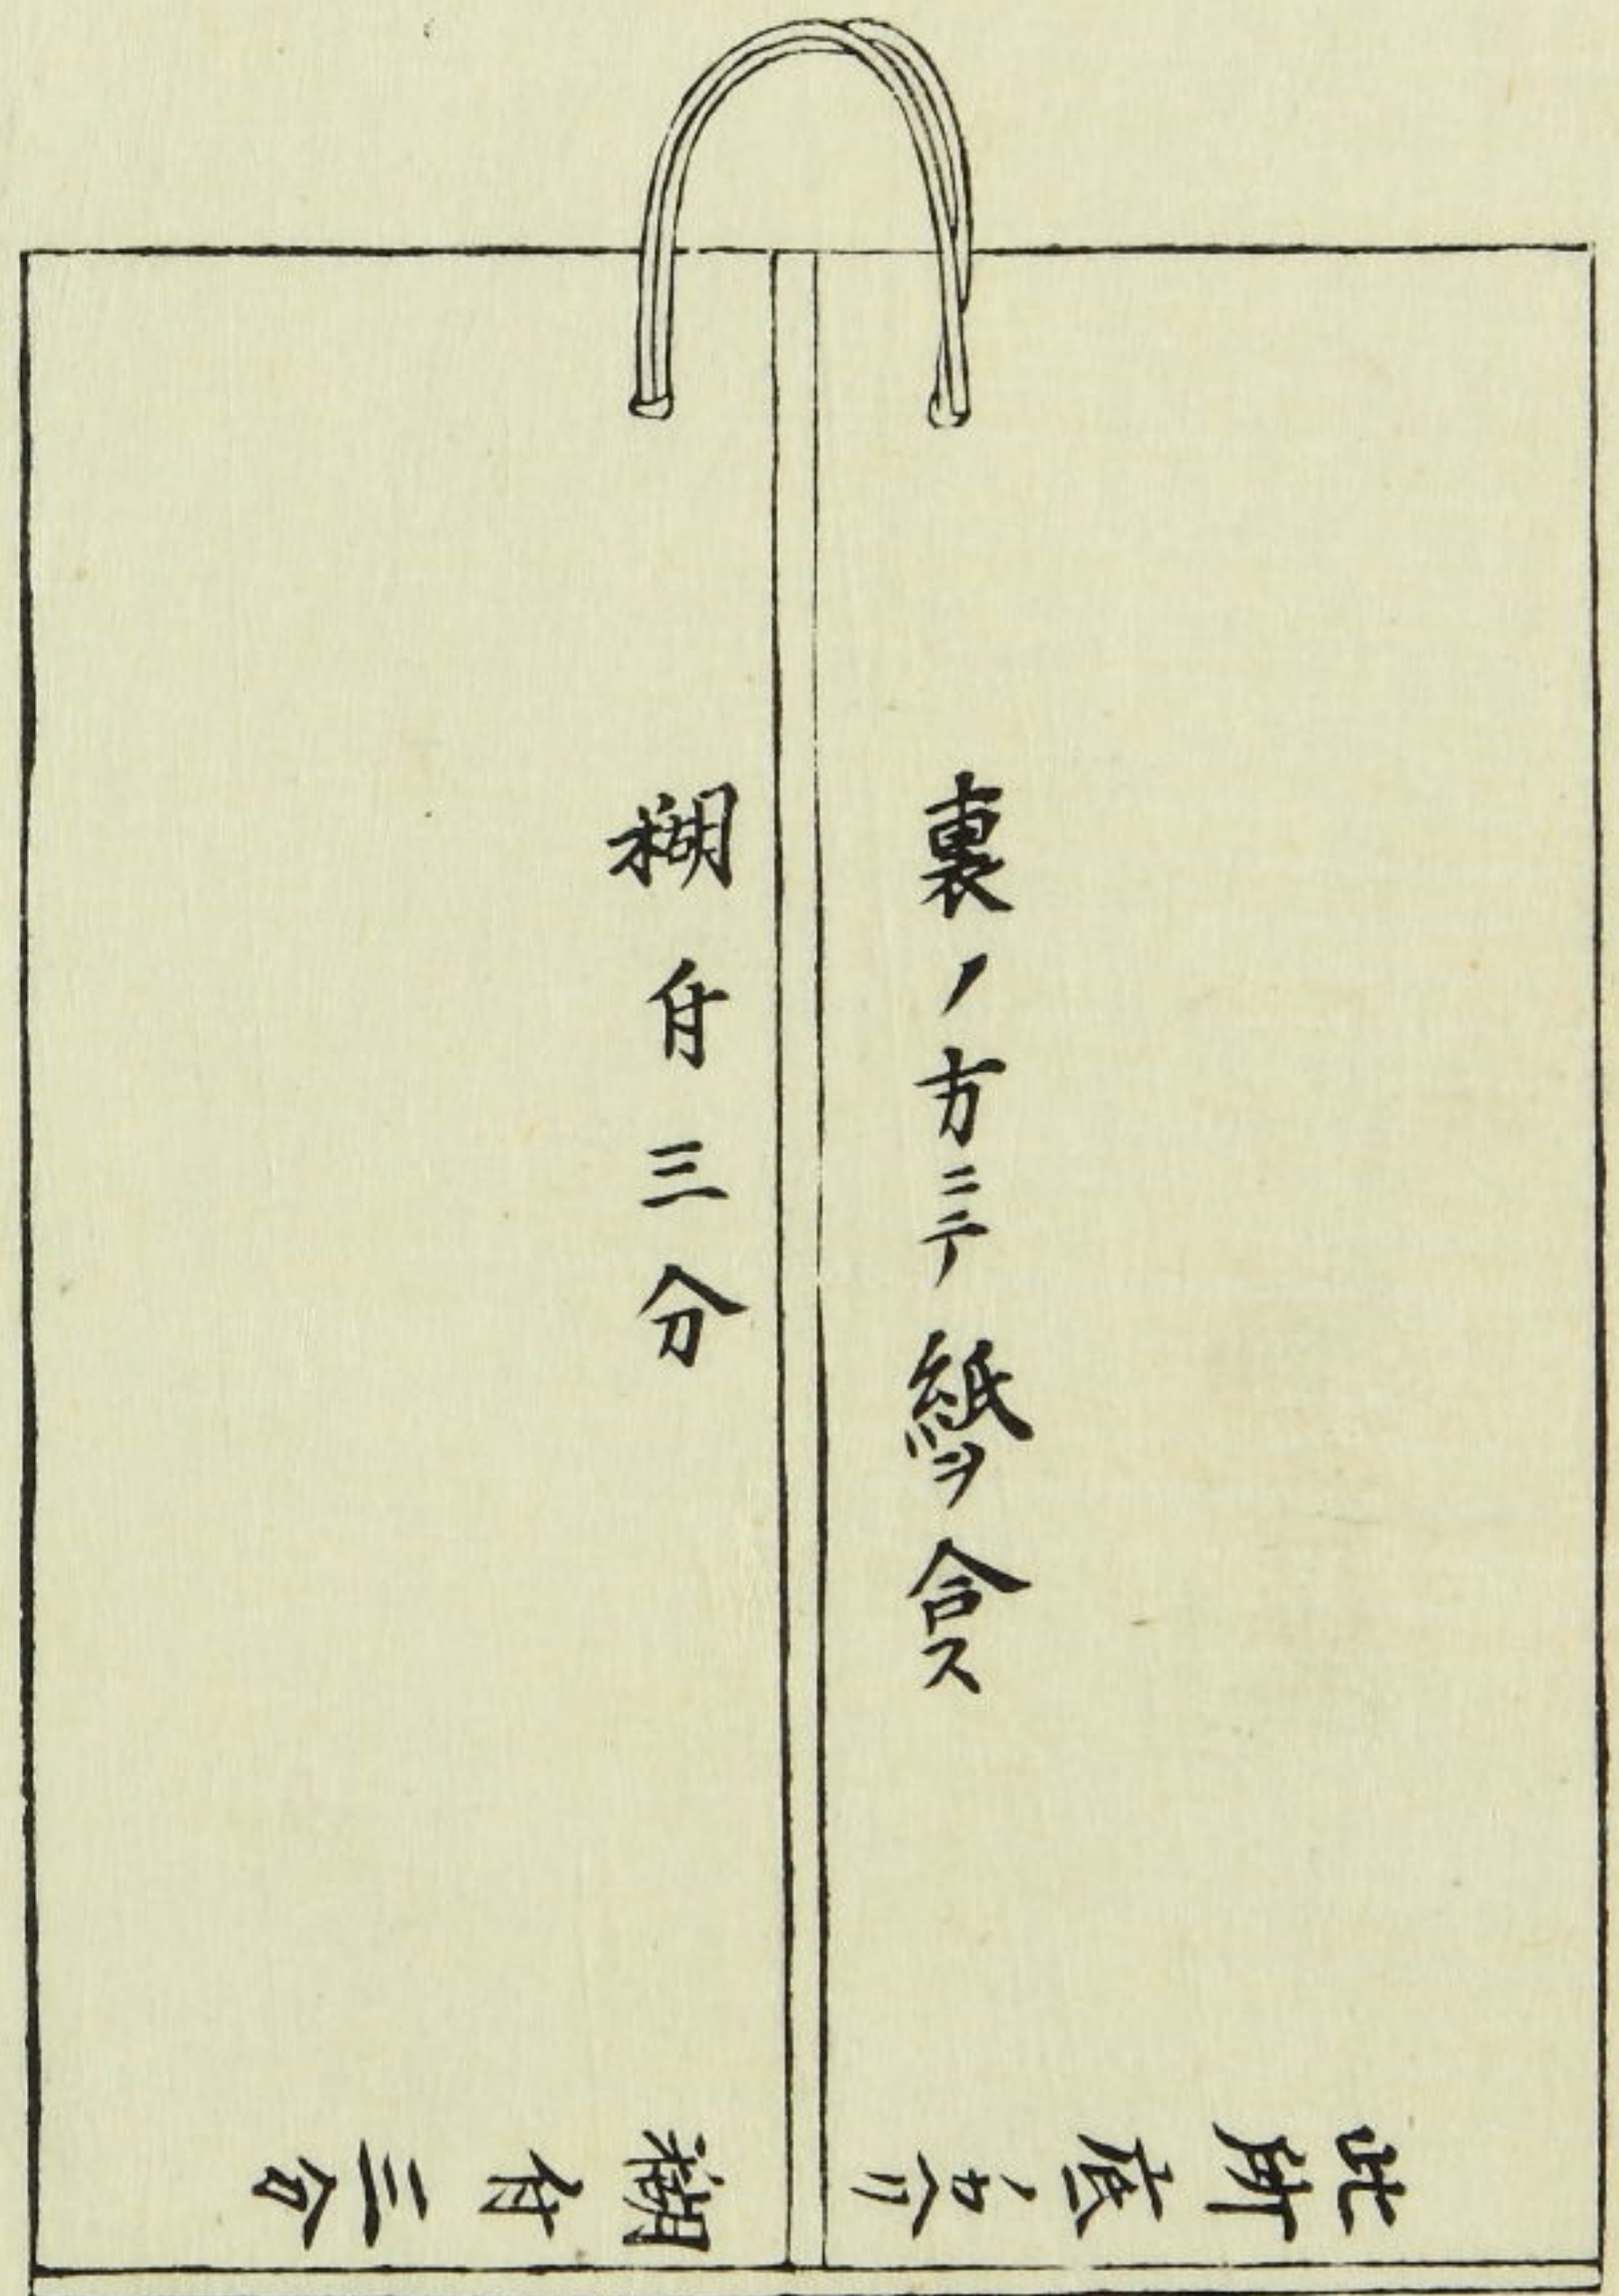 裏ノ方ニテ紙ヲ合ス
糊付三分
此所底ノカヘリ
糊付三分